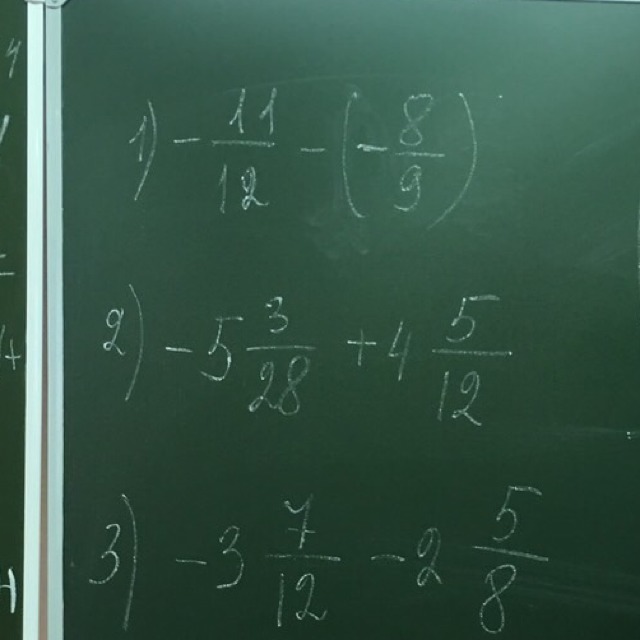 1) - 11/12 - (- 8/9)
2) - 5 3/28 + 4 5/12
3) - 3 7/12 - 2 5/8